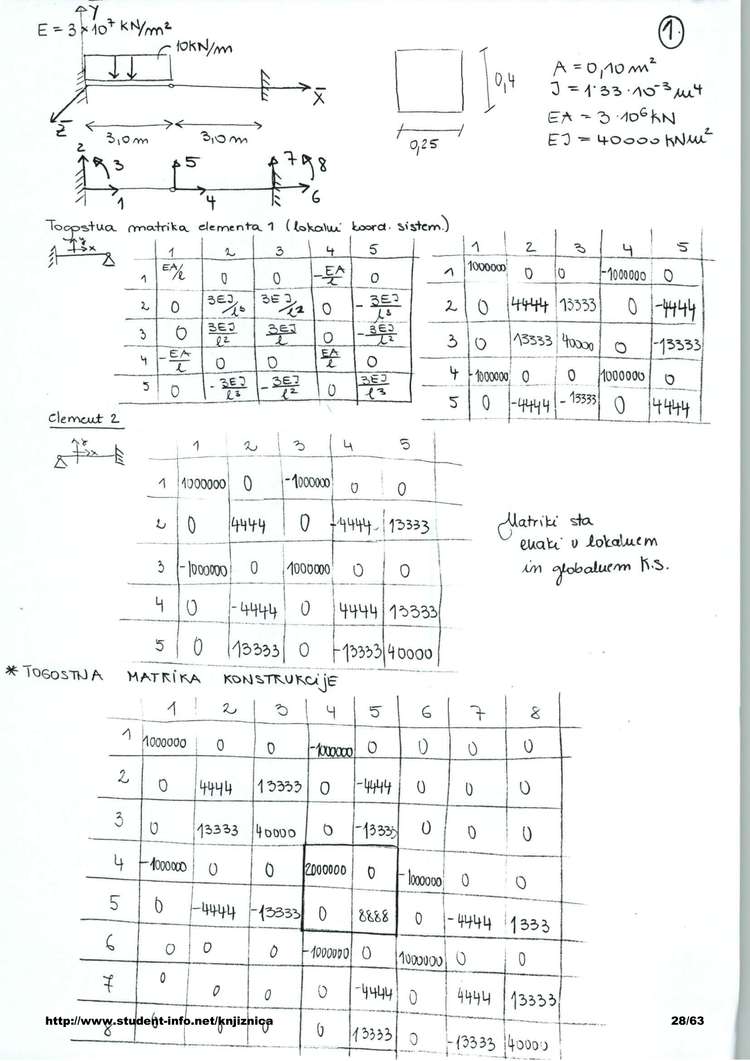 Y
E = 3 × 10⁷ kN/m²
10kN/m
1.
X
Z
3,0m 3,0m
0,4
0,25
A = 0,10 m²
J = 1.33 · 10⁻³ m⁴
EA = 3 · 10⁶ kN
EJ = 40000 kNm²
2 3 5 7 8
1 4 6
Togostna matrika elementa 1 (lokalni koord. sistem)
y x
1 2 3 4 5
1 EA/l 0 0 -EA/l 0
2 0 3EJ/l³ 3EJ/l² 0 -3EJ/l³
3 0 3EJ/l² 3EJ/l 0 -3EJ/l²
4 -EA/l 0 0 EA/l 0
5 0 -3EJ/l³ -3EJ/l² 0 3EJ/l³
1 2 3 4 5
1 1000000 0 0 -1000000 0
2 0 4444 13333 0 -4444
3 0 13333 40000 0 -13333
4 -1000000 0 0 1000000 0
5 0 -4444 -13333 0 4444
Element 2
y x
1 2 3 4 5
1 1000000 0 -1000000 0 0
2 0 4444 0 -4444 13333
3 -1000000 0 1000000 0 0
4 0 -4444 0 4444 13333
5 0 13333 0 -13333 40000
Matriki sta
enaki v lokalnem
in globalnem K.S.
* TOGOSTNA MATRIKA KONSTRUKCIJE
1 2 3 4 5 6 7 8
1 1000000 0 0 -1000000 0 0 0 0
2 0 4444 13333 0 -4444 0 0 0
3 0 13333 40000 0 -13333 0 0 0
4 -1000000 0 0 2000000 0 -1000000 0 0
5 0 -4444 -13333 0 8888 0 -4444 1333
6 0 0 0 -1000000 0 1000000 0 0
7 0 0 0 0 -4444 0 4444 13333
8 0 0 0 0 13333 0 -13333 40000
http://www.student-info.net/knjiznica
28/63